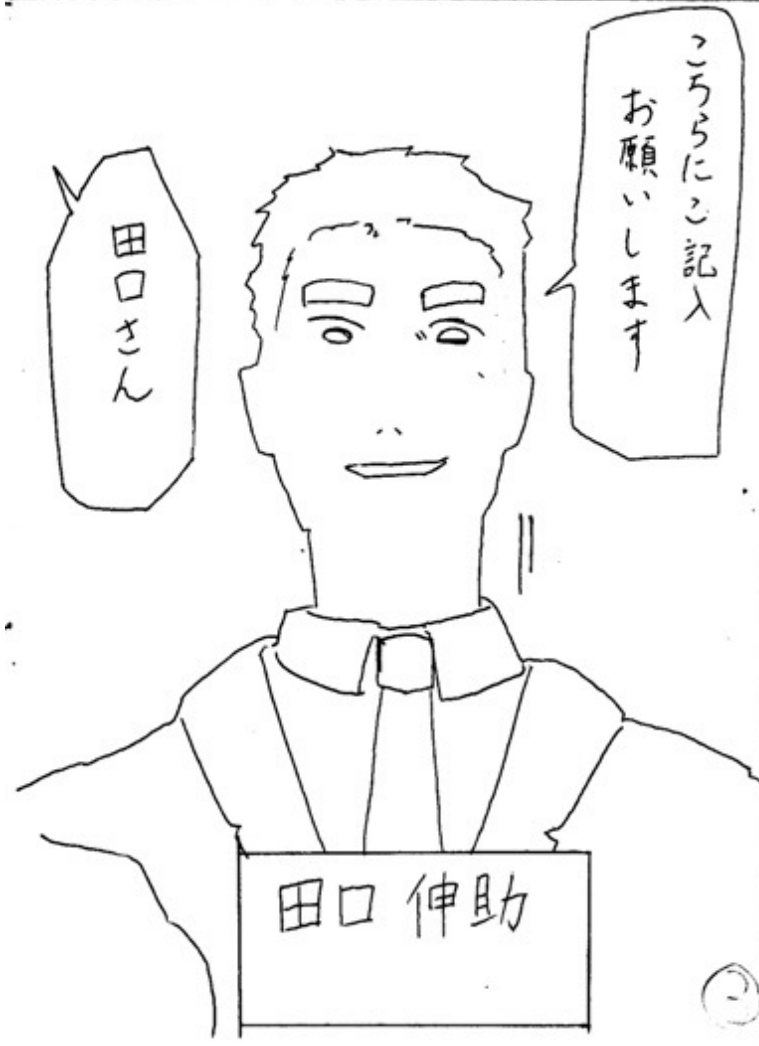 こちらにご記入
お願いします
田口さん
田口 伸助